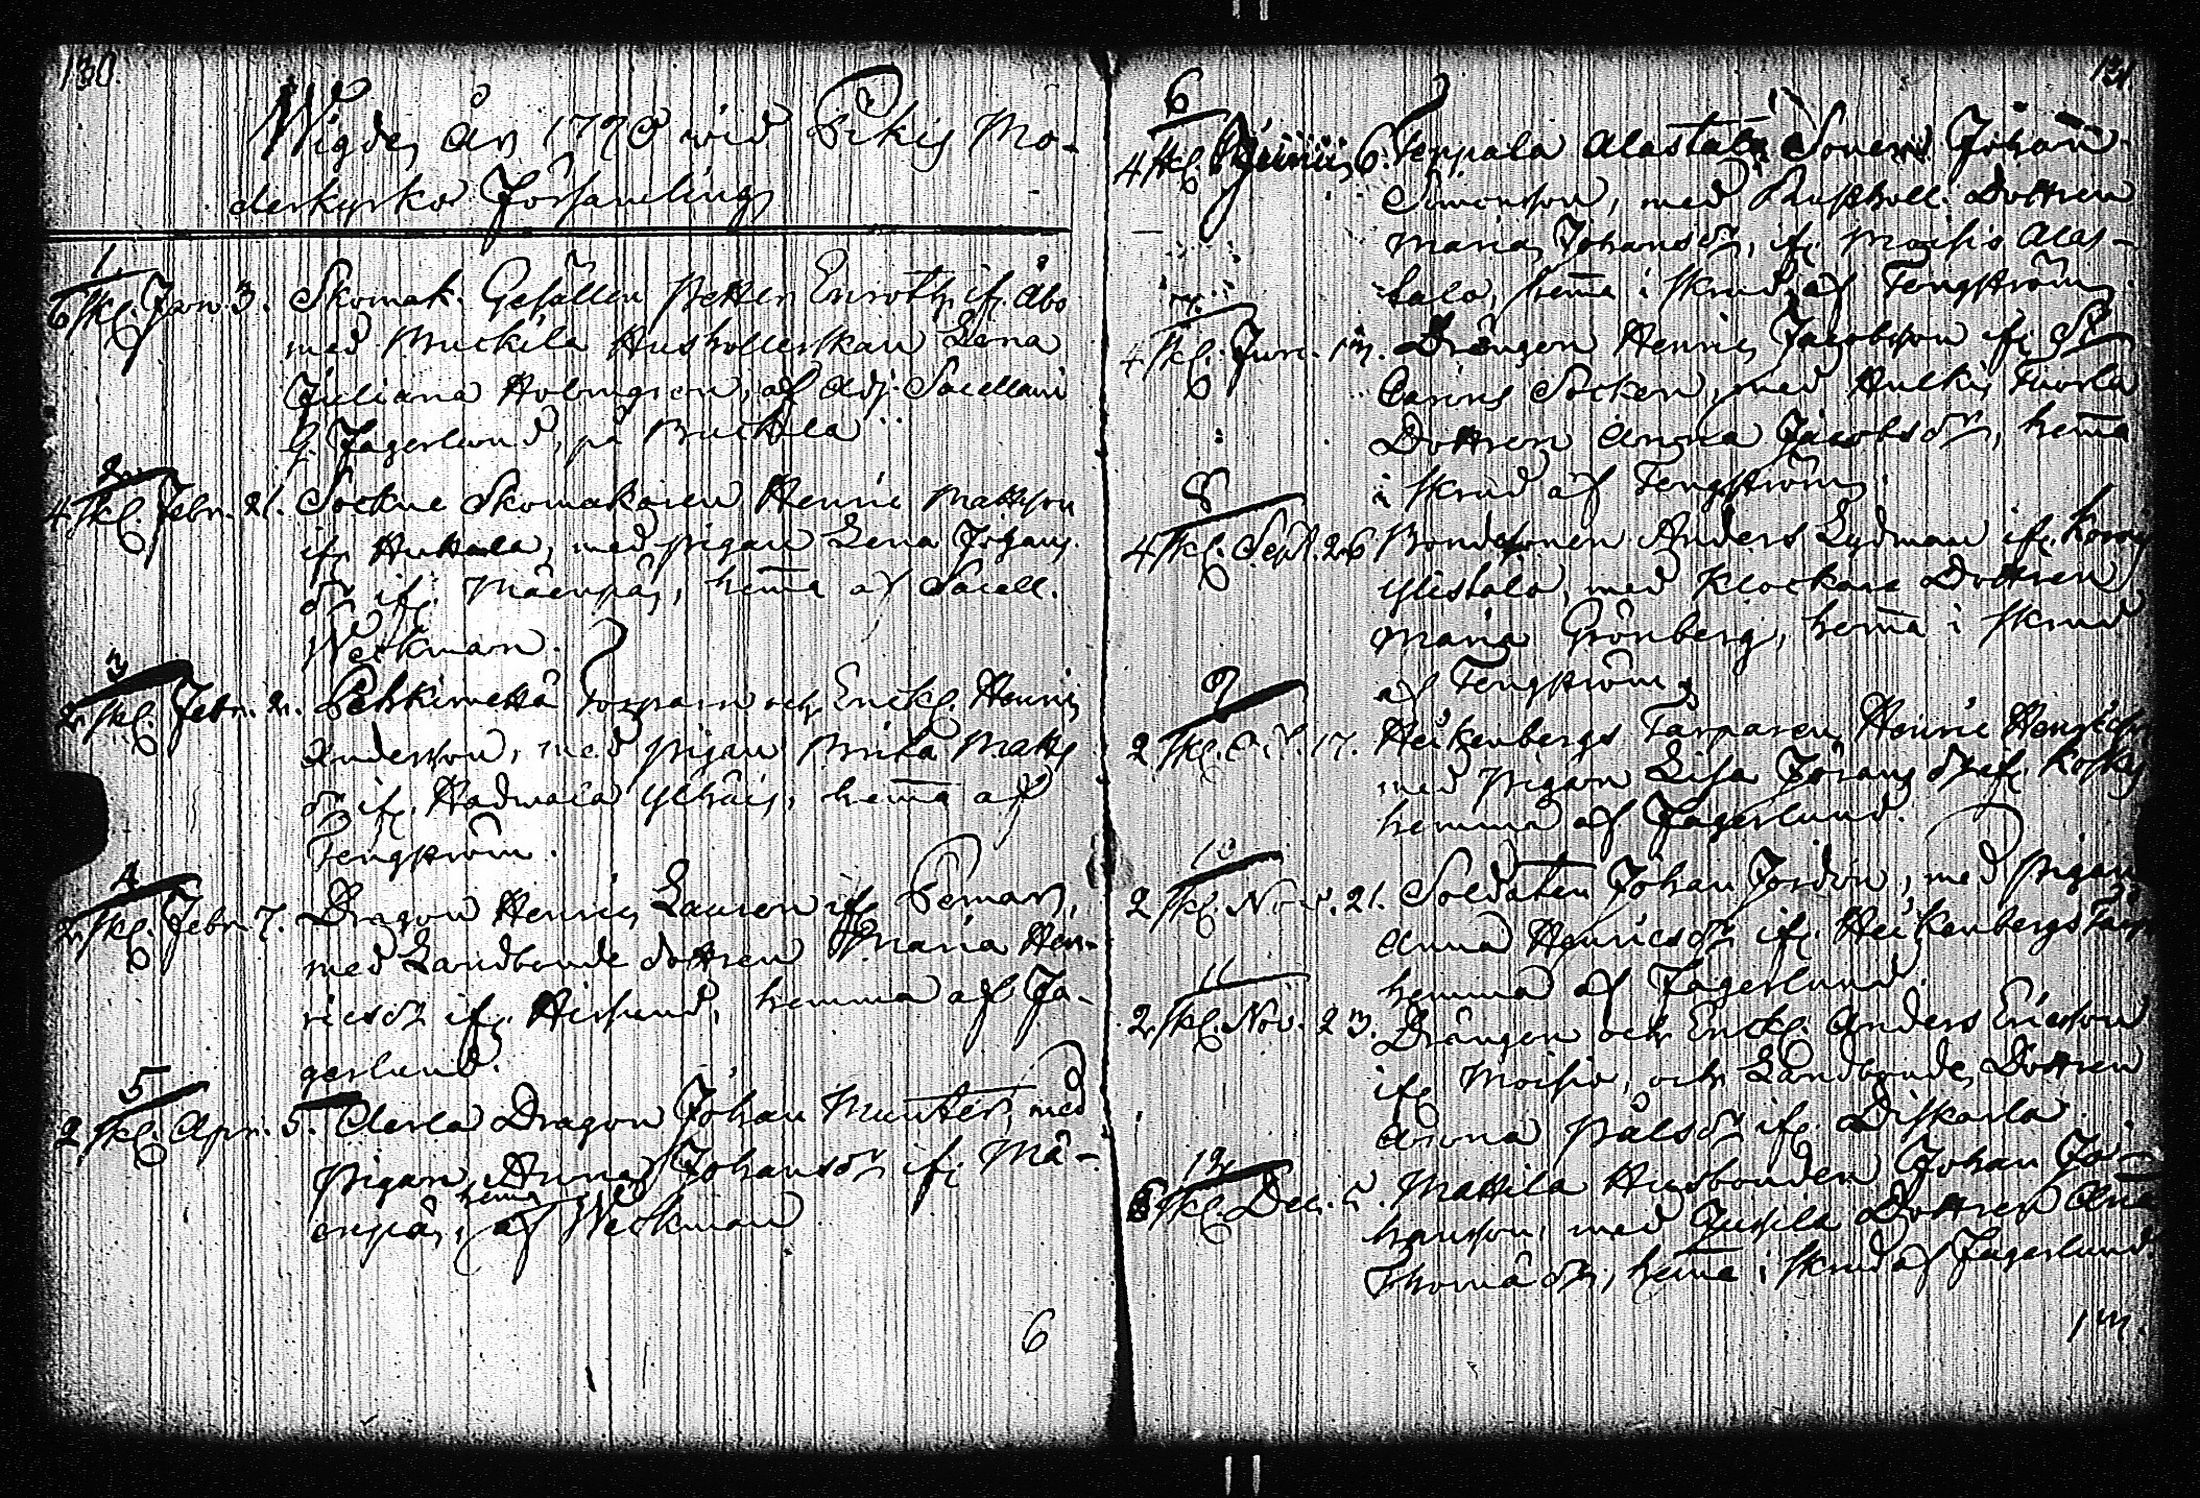 130.
Wigde År 1790 wid Pikis Mo-
derkyrko Församling
1.
6 skl. Jan. 3. Skomak. Gesällen Petter Enroth if. Åbo
med Bruckila Hushollerskan Lena
Juliana Holmgren, af Adj. Sacellani
G. Fagerlund, på Bruckila
2.
4 skl. Febr. 21. Sockne Skomakaren Henric Mattsson
if. Huttala, med pigan Lena Jörans
dr if. Mäenpä, hemma af Sacell.
Weckman.
3
2 skl. Febr. 2. Torpare och Enckl. Henric
Andersson, med pigan Brita Matts
dr if. Hadwala Ylhäis, hemma af
Tengström.
4
2 skl. Febr. 7. Dragon Henric Lauren if. Pemars,
med Landbonde dottren Maria Hen-
ricsdr if. hemma af Fa-
gerlund.
5
2 skl. Apr. 5. Aerla Dragon Johan Munter, med
pigan Anna Johansdr if. Mä-
enpä, hemma af Weckman
6
131.
6
4 skl. Junii 6. Seppala Alastalo Sonen Johan
Simonsson, med Rusthåll. Dottren
Maria Johansdr, if. Moisio Alas-
talo, hemma i skrud af Tengström
7.
4 skl. Jun. 13. Drängen Henric Jacobsson if. St
Carins Socken, med Hulkis Tuorla
Dottren Anna Jacobsdr, hemma
i skrud af Tengström.
8
4 skl. Sept. 26 Bondesonen Anders Lydman if.
Ylistalo, med Klockare Dottren
Maria Grönberg, hemma i skrud
af Tengström
9
2 skl. 17. Heikenbergs Torparen Henric
med pigan Lisa Jörans dr if. Koskis
hemma af Fagerlund.
10
2 skl. Nov. 21. Soldaten Johan Jordon, med pigan
Anna Henricsdr if. Heikenbergs Torp
hemma af Fagerlund.
11
2 skl. Nov. 23. Drängen och Enckl. Anders Ericsson
if. Moisio, och Landbonde Dottren
Anna Pålsdr if. Diskarla.
12
6 skl. Dec. 5. Mattila Husbonden Johan Jo-
hansson, med Jussila Dottren Anna
Thomædr, hemma i skrud af Fagerlund
13.